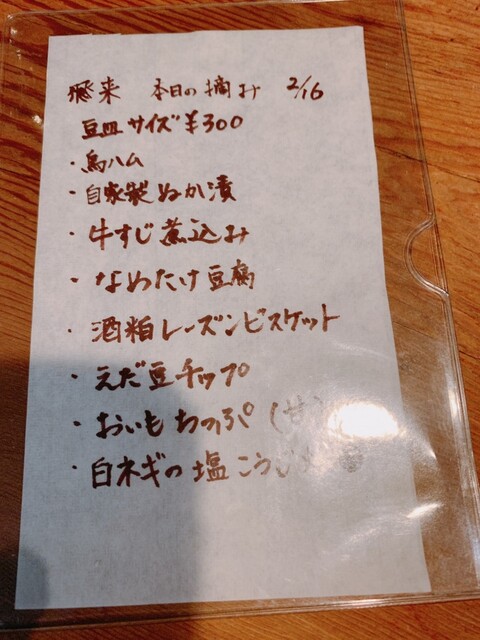 飛来 本日の摘み 2/16
豆皿サイズ¥300
・鳥ハム
・自家製ぬか漬
・牛すじ煮込み
・なめたけ豆腐
・酒粕レーズンビスケット
・えだ豆チップ
・おいもちっぷ(甘
・白ネギの塩こうじ